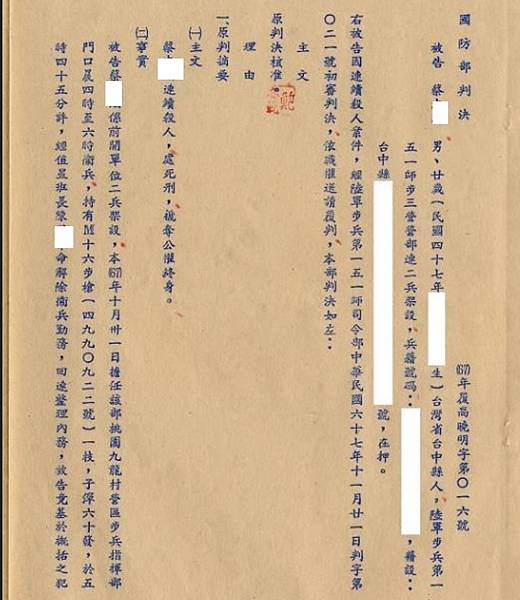 國防部判決
(67)年覆高曉明字第〇一六號
被告 蔡 男、廿歲(民國四十七年 生)台灣省台中縣人,陸軍步兵第一
五一師步三營營部連二兵架設,兵籍號碼: ,籍設:
台中縣 號,在押。
右被告因連續殺人案件,經陸軍步兵第一五一師司令部中華民國六十七年十一月廿一日判字第
〇二一號初審判決,依職權送請覆判,本部判決如左:
主文
原判決核准。
理由
一、原判摘要
㈠主文
蔡 連續殺人,處死刑,褫奪公權終身。
㈡事實
被告蔡 係前開單位二兵架設,本(67)年十月卅一日擔任該部桃園九龍村營區步兵指揮部
門口晨四時至六時衛兵,持有M十六步槍(四九九〇九二二號)一枝,子彈六十發,於五
時四十五分許,經值星班長陳 命解除衛兵勤務,回連整理內務,被告竟基於概括之犯